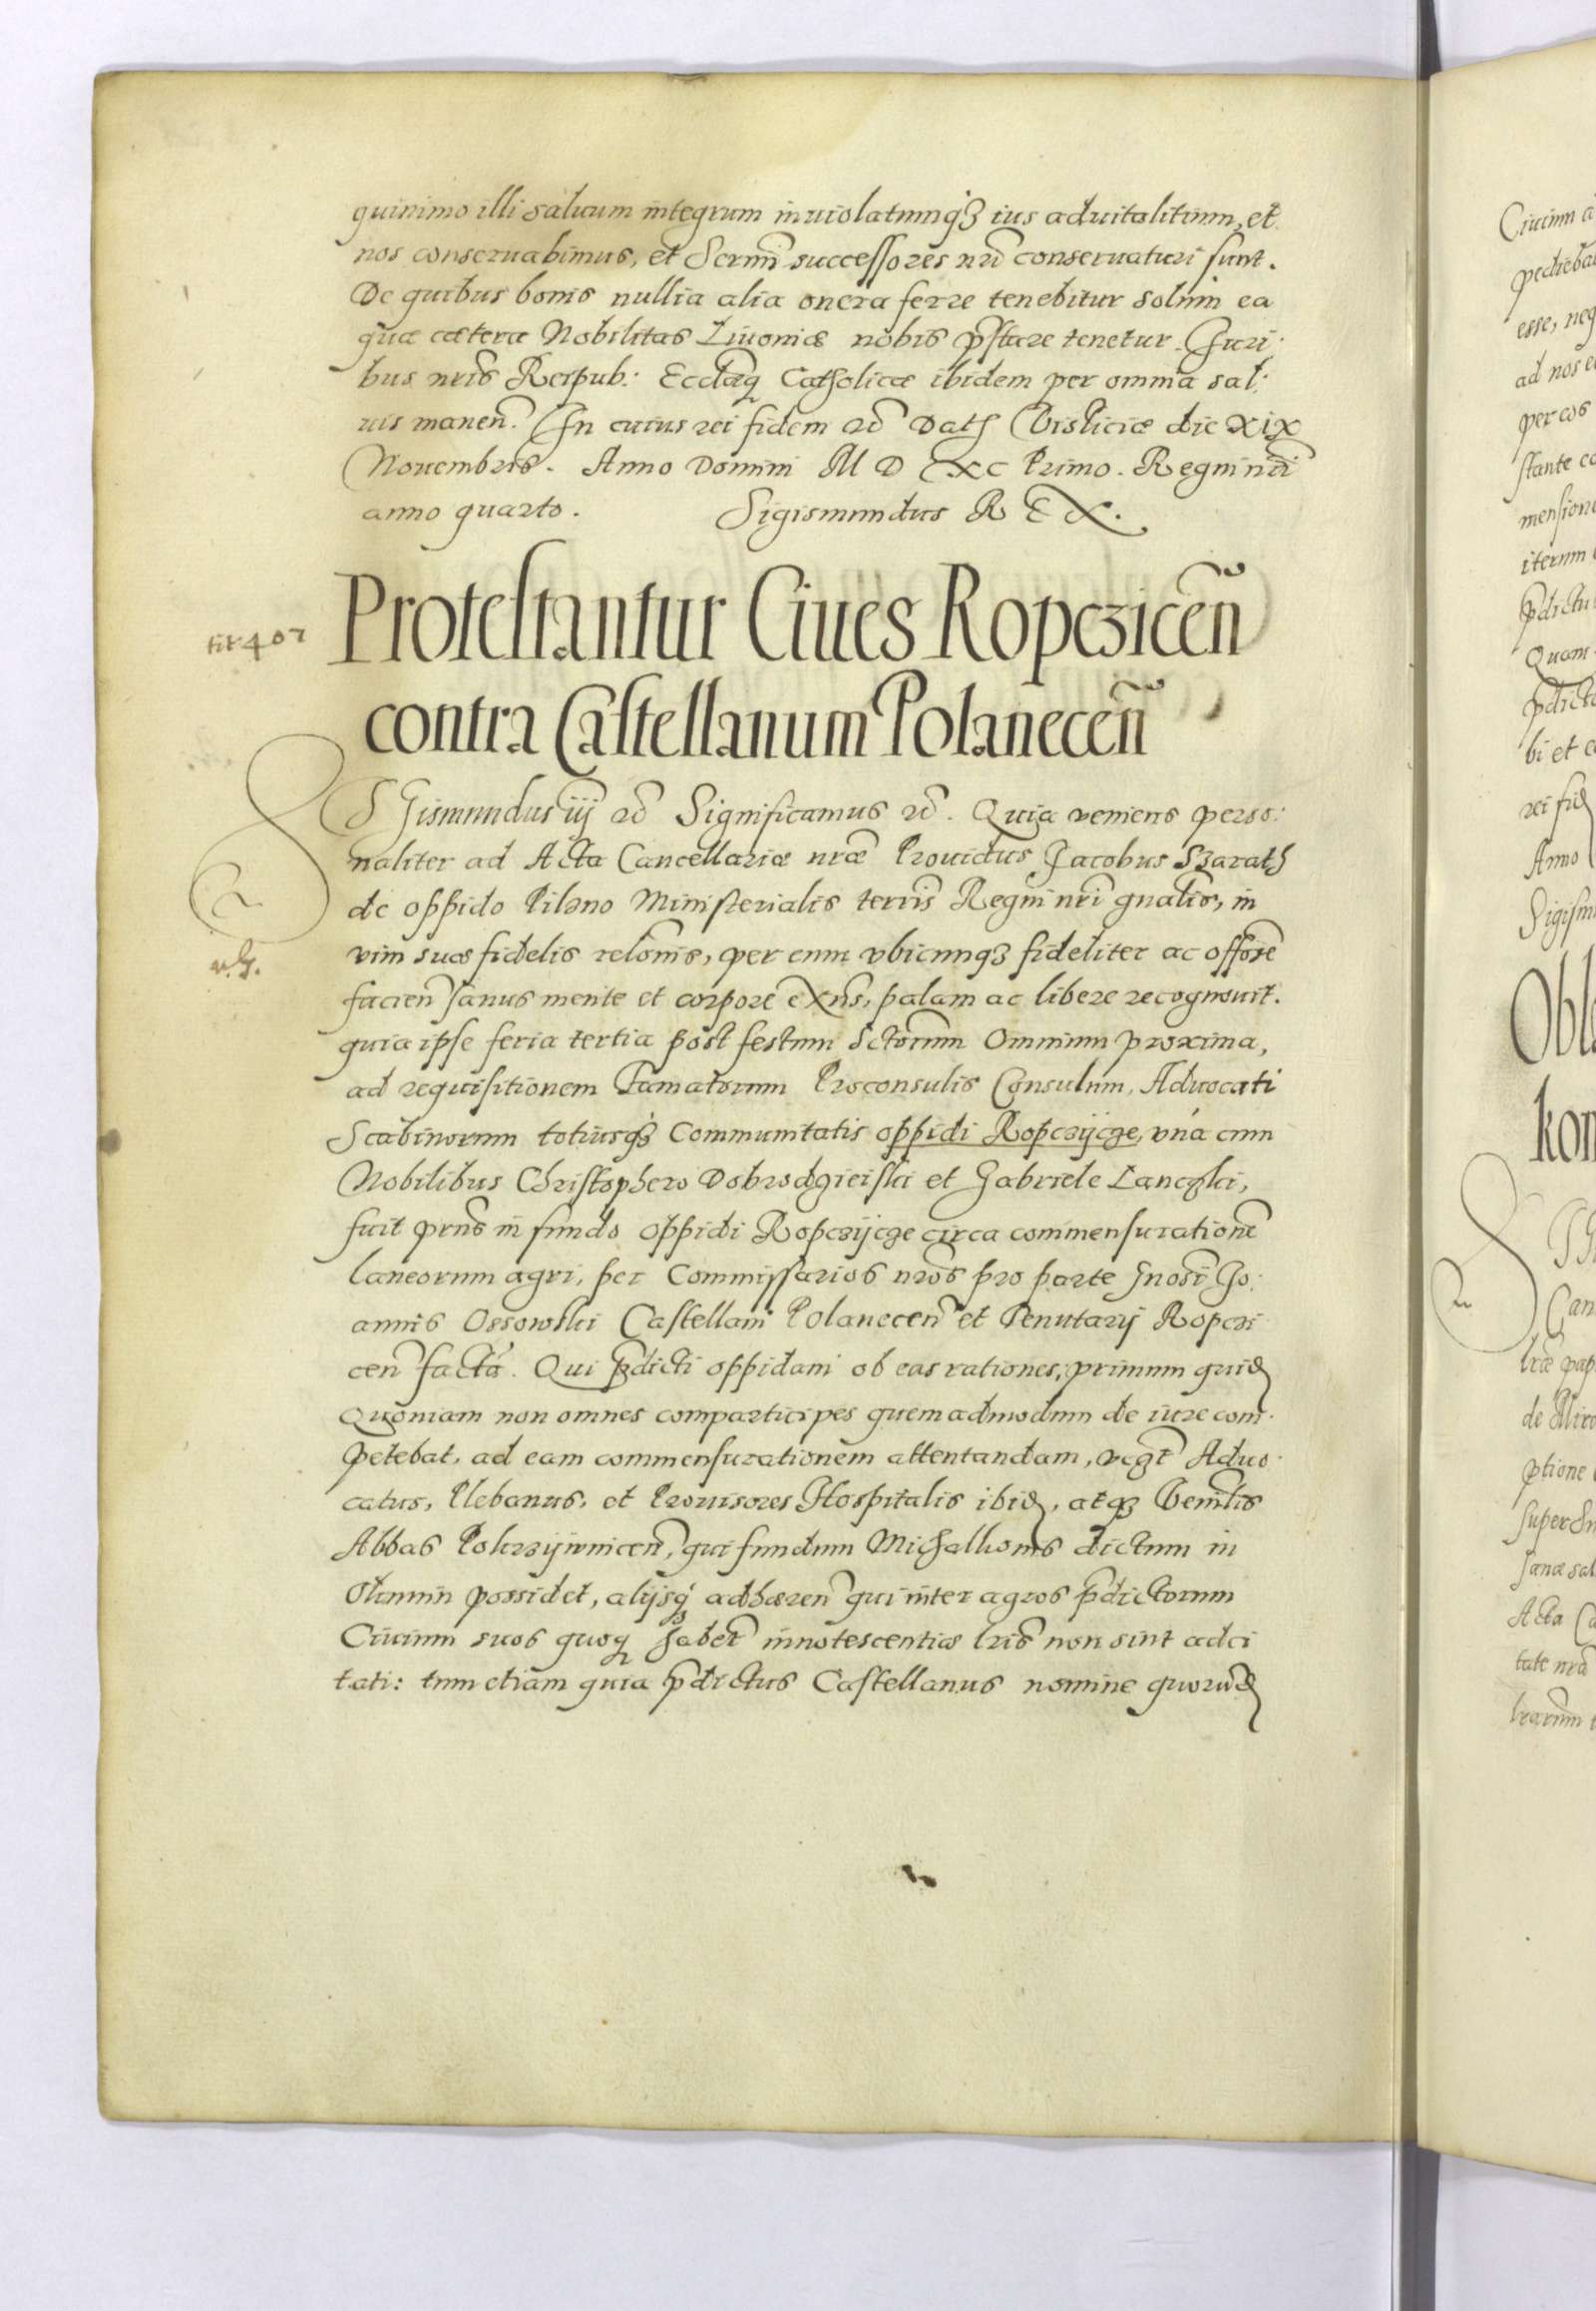 quinimo illi saluum integrum inuiolatumq́ꝫ ius aduitalitium, et
nos conseruabimus, et Sermi successores nri conseruaturi sunt.
De quibus bonis nullia alia onera ferre tenebitur solum ea
quæ cæteræ Nobilitas Liuoniæ nobis pstare tenetur. Juri:
bus nris Reipub: Ecclæq Catholicæ ibidem per omnia sal:
uis manen. In cuius rei fidem etc Dath Visliciæ die xix
Nouembris. Anno Domini M D XC Primo. Regni nri
anno quarto. Sigismundus R E X.
tit 407
Protestantur Ciues Ropczicen
contra Castellanum Polanecen
SIGismundus iij etc Significamus etc. Quia veniens perso:
naliter ad Acta Cancellariæ nræ Prouidus Jacobus Szarath
de oppido Pilzno Ministerialis terris Regni nri gnalis, in
vim suæ fidelis relonis, per eum vbicunqꝫ fideliter ac offore
facien sanus mente et corpore exns, palam ac libere recognouit.
quia ipse feria tertia post festum Sctorum Omnium proxima,
ad requisitionem Famatorum Proconsulis Consulum, Aduocati
Scabinorum totiusqꝫ Communitatis oppidi Ropczijcze, vná cum
Nobilibus Christophero Dobrodzieiski et Gabriele Lanczki,
fuit prns in fundo oppidi Ropczijcze circa commensuratione
laneorum agri, per Commissarios nros pro parte Gnosi Jo:
annis Ossowski Castellani Polanecen et Tenutarij Ropczi
cen factá. Qui pdicti oppidani ob eas rationes, primum quid
Quoniam non omnes compartici pes quemadmodum de iure com:
petebat, ad eam commensurationem attentandam, vegt Aduo:
catus, Plebanus, et Prouisores Hospitalis ibid, atqꝫ Venilis
Abbas Pokrzijwnicen, qui fundum Michalkonis dictum in
Olimin possidet, alijsq́ꝫ adhæren qui inter agros pdictorum
Ciuium suos quoqꝫ habet innotescentiæ lris non sint adci
tati: tum etiam quia pdictus Castellanus nomine quorud